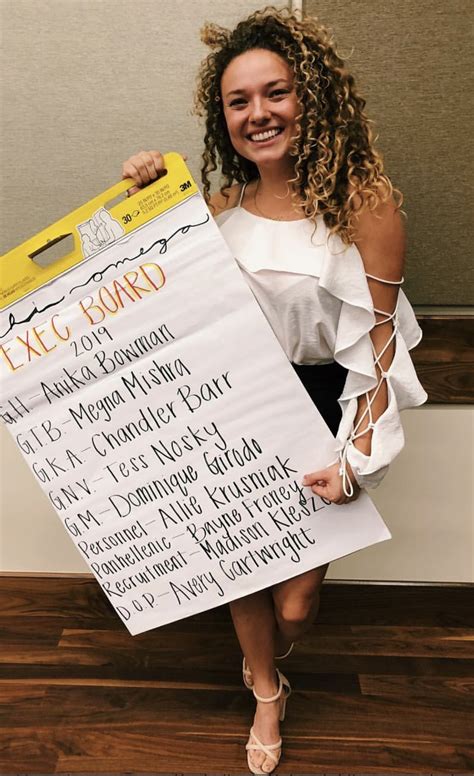 3M
30
omega
EXEC BOARD
2019
G.H.- Anika Bowman
G.T.B- Megna Mishra
G.K.A- Chandler Barr
G.N.V- Tess Nosky
G.M- Dominique Girodo
Personnel- Allie Krusniak
Panhellenic- Bayne Froney
Recruitment- Madison
D.O.P- Avery Cartwright